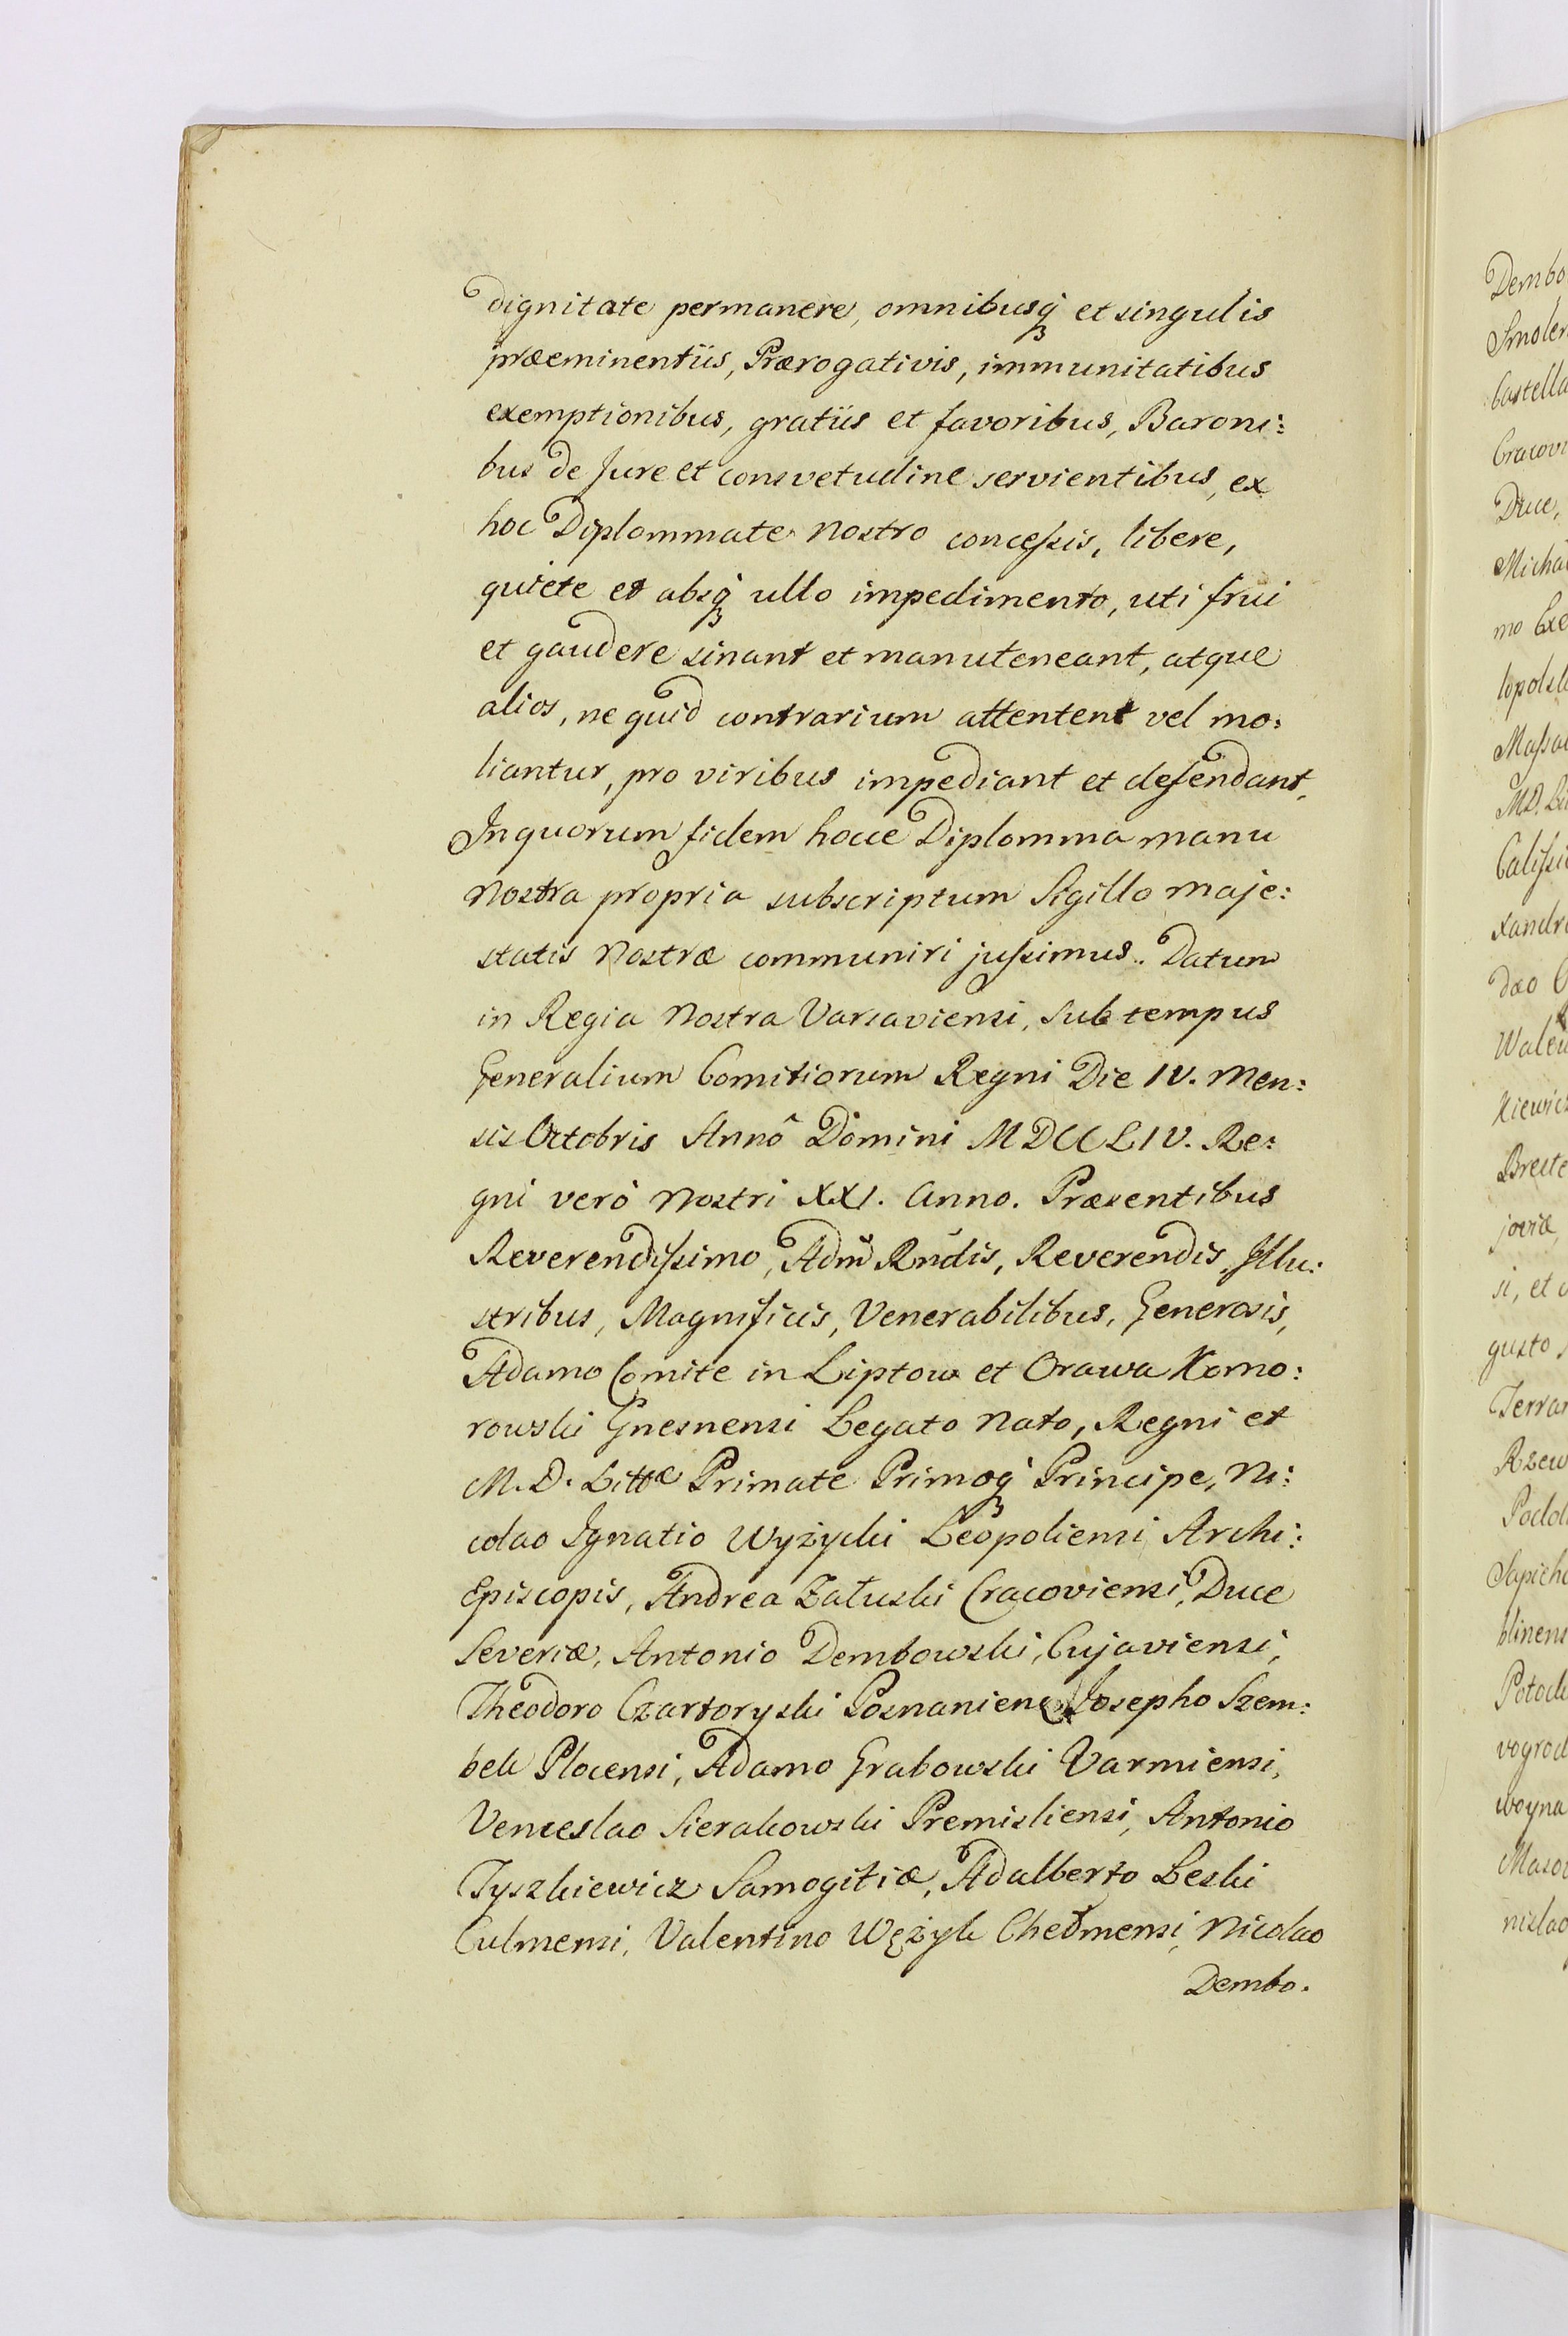 dignitate permanere, omnibusq́ʒ et singulis
præeminentiis, Prærogativis, immunitatibus
exemptionibus, gratiis et favoribus, Baroni:
bus de Jure et consvetudine servientibus, ex
hoc Diplommate Nostro concessis, libere,
quiete et absq́ʒ ullo impedimento, uti frui
et gaudere sinant et manuteneant, atque
alios, ne quid contrarium attentent vel mo:
liantur, pro viribus impediant et defendant,
In quorum fidem hocce Diplomma manu
Nostra propria subscriptum Sigillo Maje:
statis Nostræ communiri jussimus. Datum
in Regia Nostra Varsaviensi, Sub tempus
Generalium Comitiorum Regni Die IV. Men:
sis Octobris Annô Domini MDCCLIV. Re:
gni verò Nostri XXI. Anno. Præsentibus
Reverendissimo, Adm̃ Rñdis, Reverendis, Illu:
stribus, Magnificis, Venerabilibus, Generosis,
Adamo Comite in Liptow et Orawa Komo:
rowski Gnesnensi Legato Nato, Regni et
M. D. Littæ Primate Primoq́ʒ Principe, Ni:
colao Ignatio Wyżycki Leopoliensi Archi:
Episcopis, Andrea Załuski Cracoviensi, Duce
Severiæ, Antonio Dembowski, Cujaviensi,
Theodoro Czartoryski Posnaniens Josepho Szem:
bek Plocensi, Adamo Grabowski Varmiensi,
Venceslao Sierakowski Premisliensi, Antonio
Tyszkiewicz Samogitiæ, Adalberto Leski
Culmensi, Valentino Wężyk Chełmensi, Nicolao
Dembo.
Dembo
Smolen
Castella
Cracovi
Duce,
Micha
mo Exe
lopolsk
Massa
M.D. Li
Calissi
xandro
dæo
Walew
kiewic
Breste
joviæ,
si, et
gusto
Terrar
Rzew
Podol
Sapieh
blinens
Potock
vogrod
woyna
Masov
nislao